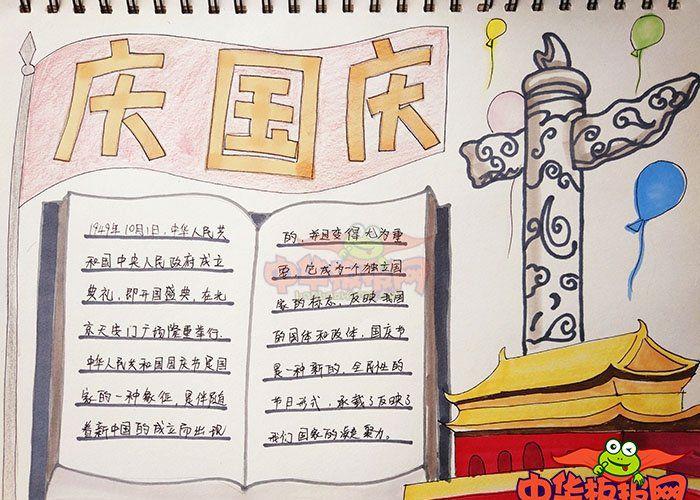 庆国庆
1949年10月1日,中华人民共
和国中央人民政府成立
典礼,即开国盛典,在北
京天安门广场隆重举行.
中华人民共和国国庆节是国
家的一种象征,是伴随
着新中国的成立而出现
的,并且变得尤为重
要,它成为一个独立国
家的标志,反映我国
的国体和政体,国庆节
是一种新的,全民性的
节日形式,承载了反映了
我们国家的凝聚力。
中华报报网